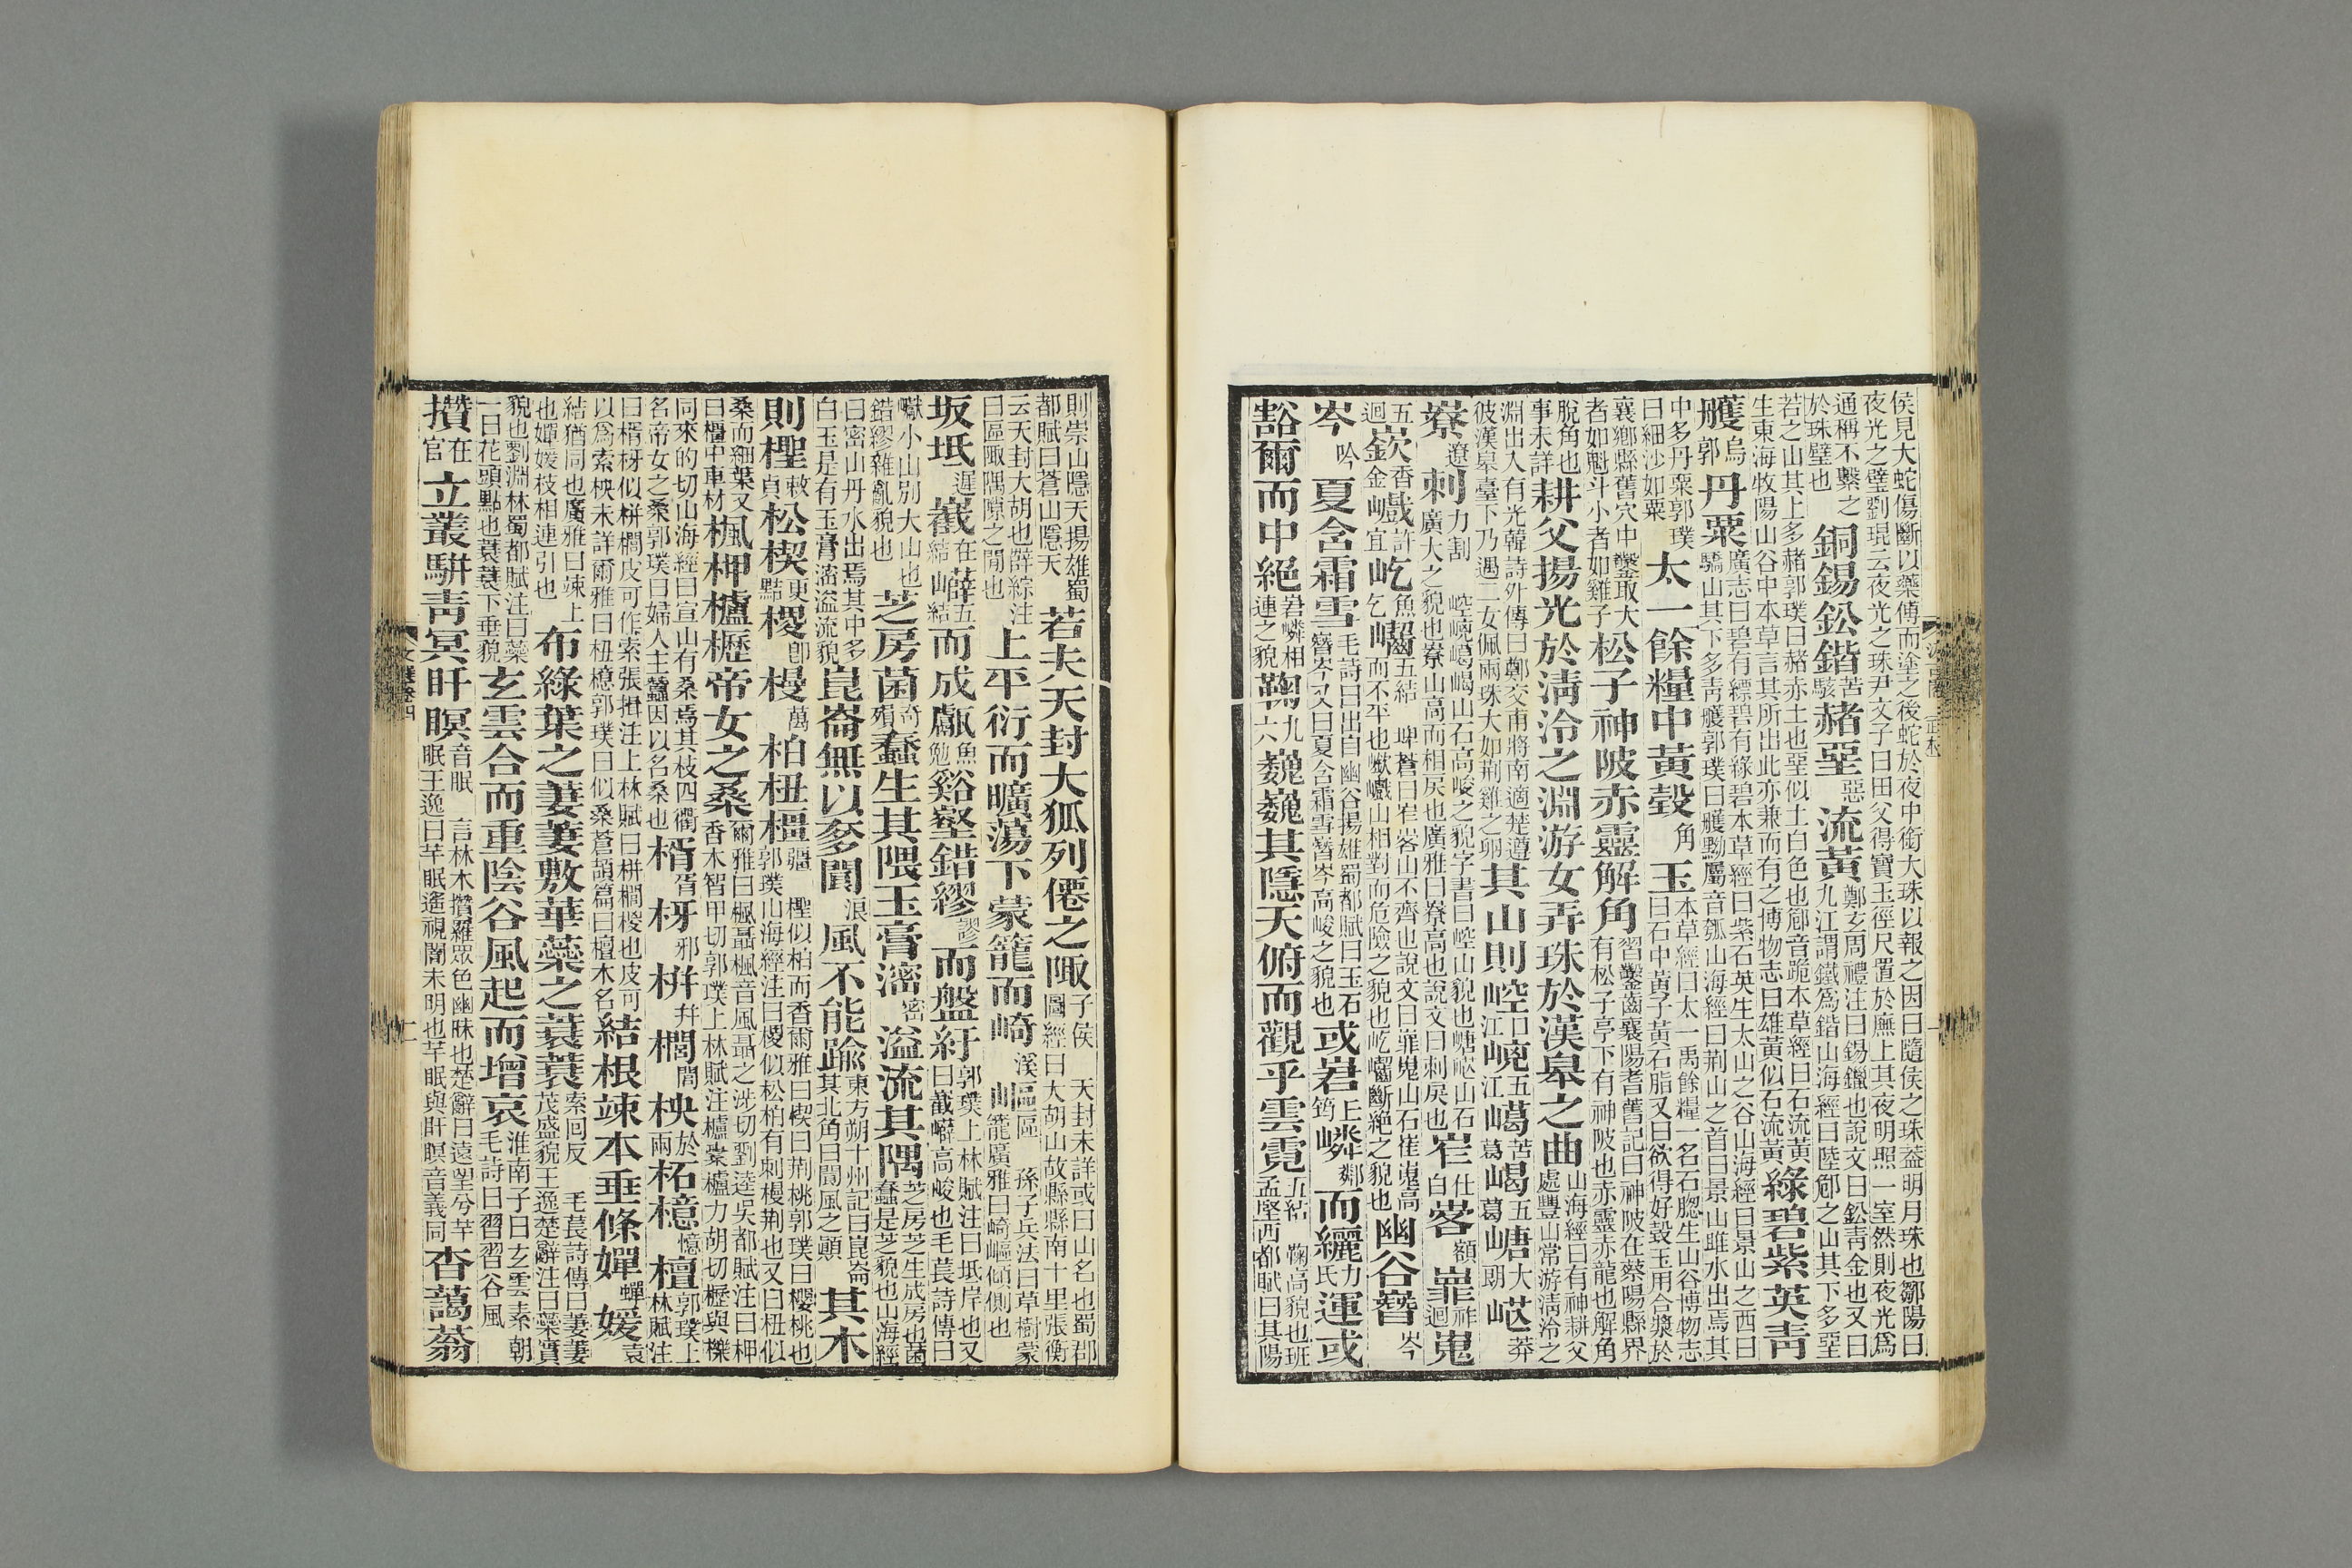 侯見大蛇傷斷以藥傅而塗之後蛇於夜中銜大珠以報之因曰隨侯之珠葢明月珠也鄒陽曰
夜光之璧劉琨云夜光之珠尹文子曰田父得寶玉徑尺置於廡上其夜明照一室然則夜光爲
通稱不繫之於珠璧也銅錫鈆鍇苦駭赭堊惡流黃鄭玄周禮注曰錫鑞也說文曰鈆青金也又曰九江謂鐵爲鍇山海經曰陸郋之山其下多堊
若之山其上多赭郭璞曰赭赤土也堊似土白色也郋音跪本草經曰石流黃生東海牧陽山谷中本草言其所出此亦兼而有之博物志曰雄黃似石流黃綠碧紫英青
雘烏郭丹粟廣志曰碧有縹碧有綠碧本草經曰紫石英生太山之谷山海經曰景山之西曰驕山其下多青雘郭璞曰雘黝屬音瓠山海經曰荆山之首曰景山雎水出焉其
中多丹粟郭璞曰細沙如粟太一餘糧中黃瑴角玉本草經曰太一禹餘糧一名石腦生山谷博物志曰石中黃子黃石脂又曰欲得好瑴玉用合漿於
襄鄉縣舊穴中鑿取大者如魁斗小者如雞子松子神陂赤靈解角習鑿齒襄陽耆舊記曰神陂在蔡陽縣界有松子亭下有神陂也赤靈赤龍也解角
脫角也事未詳耕父揚光於清泠之淵游女弄珠於漢皋之曲山海經曰有神耕父處豐山常游清泠之
淵出入有光韓詩外傳曰鄭交甫將南適楚遵彼漢皋臺下乃遇二女佩兩珠大如荆雞之卵其山則崆口江㟅五江嶱苦葛嵑五葛嵣大朗㟐莽
嶚遼剌力割崆㟅嶱嵑山石高峻之貌字書曰崆山貌也嵣㟐山石廣大之貌也嶚山高而相戾也廣雅曰嶚高也說文曰剌戾也岝仕白峉額㠑祚迴嵬
五迴嶔香金巇許宜屹魚乞㠜五結埤蒼曰岝峉山不齊也說文曰㠑嵬山石崔嵬高而不平也嶔巇山相對而危險之貌也屹㠜斷絕之貌也幽谷嶜岑
岑吟夏含霜雪毛詩曰出自幽谷揚雄蜀都賦曰玉石嶜岑又曰夏含霜雪嶜岑高峻之貌也或岩上筠嶙鄰而纚力氏連或
豁爾而中絕岩嶙相連之貌鞠九六巍巍其隱天俯而觀乎雲霓五結鞠高貌也班孟堅西都賦曰其陽
則崇山隱天揚雄蜀都賦曰蒼山隱天若夫天封大狐列僊之陬子侯天封未詳或曰山名也蜀郡圖經曰大胡山故縣縣南十里張衡
云天封大胡也薛綜注曰區陬隅隙之閒也上平衍而曠蕩下蒙籠而崎溪嶇區孫子兵法曰草樹蒙籠廣雅曰崎嶇傾側也
坂坻遲嶻在結嶭五結而成甗魚勉谿壑錯繆謬而盤紆郭璞上林賦注曰坻岸也又曰嶻嶭高峻也毛萇詩傳曰
巘小山別大山也錯繆雜亂貌也芝房菌奇殞蠢生其隈玉膏滵密溢流其隅芝房芝生成房也菌蠢是芝貌也山海經
曰密山丹水出焉其中多白玉是有玉膏滵溢流貌崑崙無以奓閬浪風不能踰東方朔十州記曰崑崙其北角曰閬風之顚其木
則檉敕貞松楔更黠㮨卽槾萬柏杻橿疆檉似柏而香爾雅曰楔曰荆桃郭璞曰櫻桃也郭璞山海經注曰㮨似松柏有刺槾荆也又曰杻似
桑而細葉又曰橿中車材楓柙櫨櫪帝女之桑爾雅曰楓聶楓音風聶之涉切劉逵吳都賦注曰柙香木智甲切郭璞上林賦注櫨橐櫨力胡切櫪與櫟
同來的切山海經曰宣山有桑焉其枝四衢名帝女之桑郭璞曰婦人主蠶因以名桑也楈胥枒邪栟幷櫚閭柍於兩柘檍憶檀郭璞上林賦注
曰楈枒似栟櫚皮可作索張揖注上林賦曰栟櫚椶也皮可以爲索柍未詳爾雅曰杻檍郭璞曰似桑蒼頡篇曰檀木名結根竦本垂條嬋蟬媛袁
結猶同也廣雅曰竦上也嬋媛枝相連引也布綠葉之萋萋敷華蘂之蓑蓑索回反毛萇詩傳曰萋萋茂盛貌王逸楚辭注曰蘂實
貌也劉淵林蜀都賦注曰蘂一曰花頭點也蓑蓑下垂貌玄雲合而重陰谷風起而增哀淮南子曰玄雲素朝毛詩曰習習谷風
攢在官立叢駢青冥旰瞑音眠言林木攢羅眾色幽昧也楚辭曰遠望兮芊眠王逸曰芊眠遙視闇未明也芊眠與盰瞑音義同杳藹蓊
文選卷四